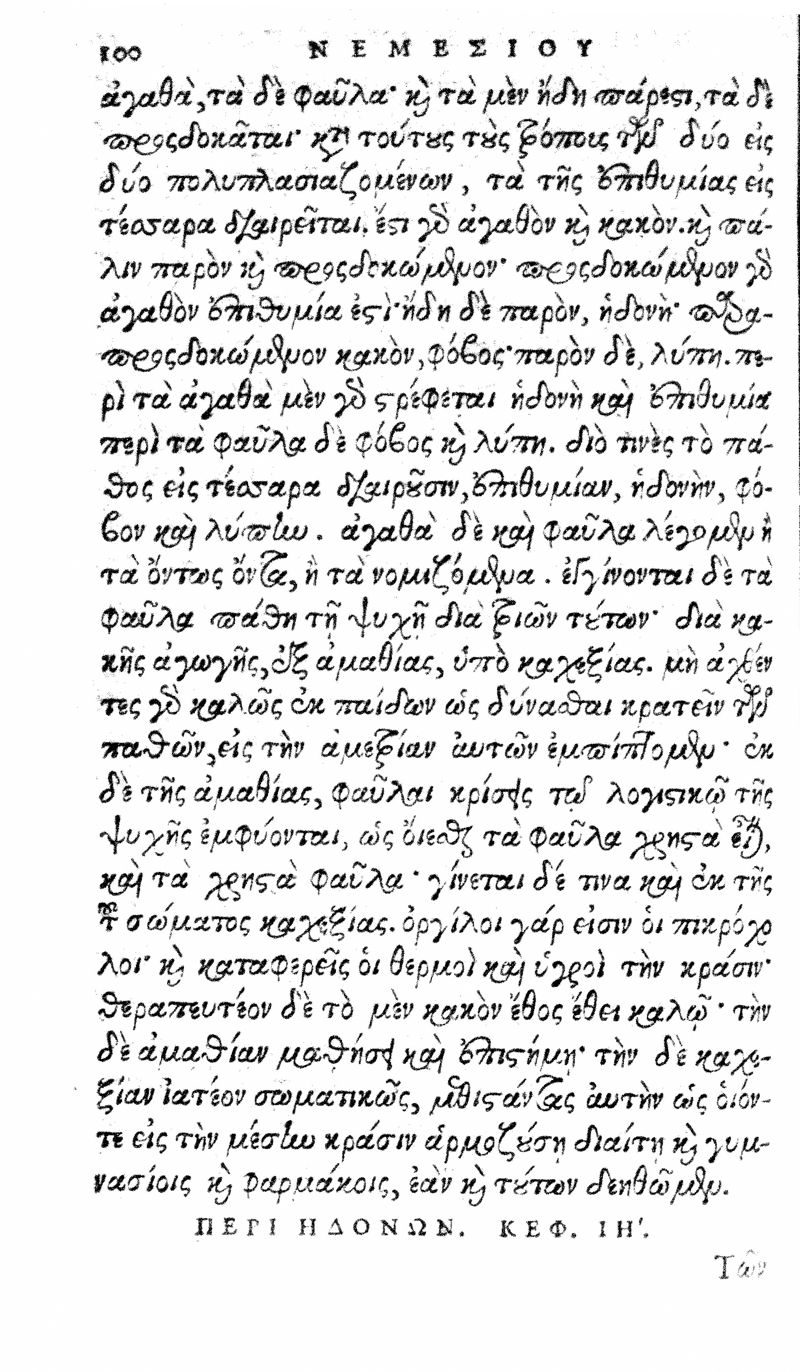 100 ΝΕΜΕΣΙΟΥ
ἀγαθὰ, τὰ δὲ φαῦλα· καὶ τὰ μὲν ἤδη πάρεστι, τὰ δὲ
προςδοκᾶται· κατὰ τούτους τοὺς τρόπους τῶν δύο εἰς
δύο πολυπλασιαζομένων, τὰ τῆς ἐπιθυμίας εἰς
τέσσαρα διαιρεῖται. ἔστι γὰρ ἀγαθὸν καὶ κακὸν. καὶ πά-
λιν παρὸν καὶ προςδοκώμενον· προςδοκώμενον γὰρ
ἀγαθὸν ἐπιθυμία ἐστὶ· ἤδη δὲ παρὸν, ἡδονὴ·
προςδοκώμενον κακὸν, φόβος· παρὸν δὲ, λύπη. πε-
ρὶ τὰ ἀγαθὰ μὲν γὰρ στρέφεται ἡδονὴ καὶ ἐπιθυμία
περὶ τὰ φαῦλα δὲ φόβος καὶ λύπη. διὸ τινὲς τὸ πά-
θος εἰς τέσσαρα διαιροῦσιν, ἐπιθυμίαν, ἡδονὴν, φό-
βον καὶ λύπην. ἀγαθὰ δὲ καὶ φαῦλα λέγομεν ἢ
τὰ ὄντως ὄντα, ἢ τὰ νομιζόμενα. ἐγγίνονται δὲ τὰ
φαῦλα πάθη τῇ ψυχῇ διὰ τριῶν τούτων· διὰ κα-
κῆς ἀγωγῆς, ἐξ ἀμαθίας, ὑπὸ καχεξίας. μὴ ἀχθέν
τες γὰρ καλῶς ἐκ παίδων ὡς δύνασθαι κρατεῖν τῶν
παθῶν, εἰς τὴν ἀμετρίαν αὐτῶν ἐμπίπτομεν· ἐκ
δὲ τῆς ἀμαθίας, φαῦλαι κρίσεις τῷ λογιστικῷ τῆς
ψυχῆς ἐμφύονται, ὡς οἴεσθαι τὰ φαῦλα χρηστὰ εἶναι,
καὶ τὰ χρηστὰ φαῦλα· γίνεται δέ τινα καὶ ἐκ τῆς
τοῦ σώματος καχεξίας. ὀργίλοι γάρ εἰσιν οἱ πικρόχο
λοι· καὶ καταφερεῖς οἱ θερμοὶ καὶ ὑγροὶ τὴν κράσιν·
θεραπευτέον δὲ τὸ μὲν κακὸν ἔθος ἔθει καλῷ· τὴν
δὲ ἀμαθίαν μαθήσει καὶ ἐπιστήμῃ· τὴν δὲ καχε-
ξίαν ἰατέον σωματικῶς, μεθιστάντας αὐτὴν ὡς οἷόν-
τε εἰς τὴν μέσην κράσιν ἁρμοζούσῃ διαίτῃ καὶ γυμ-
νασίοις καὶ φαρμάκοις, ἐὰν καὶ τούτων δεηθῶμεν.
ΠΕΡΙ ΗΔΟΝΩΝ. ΚΕΦ. ΙΗ′.
Τῶν